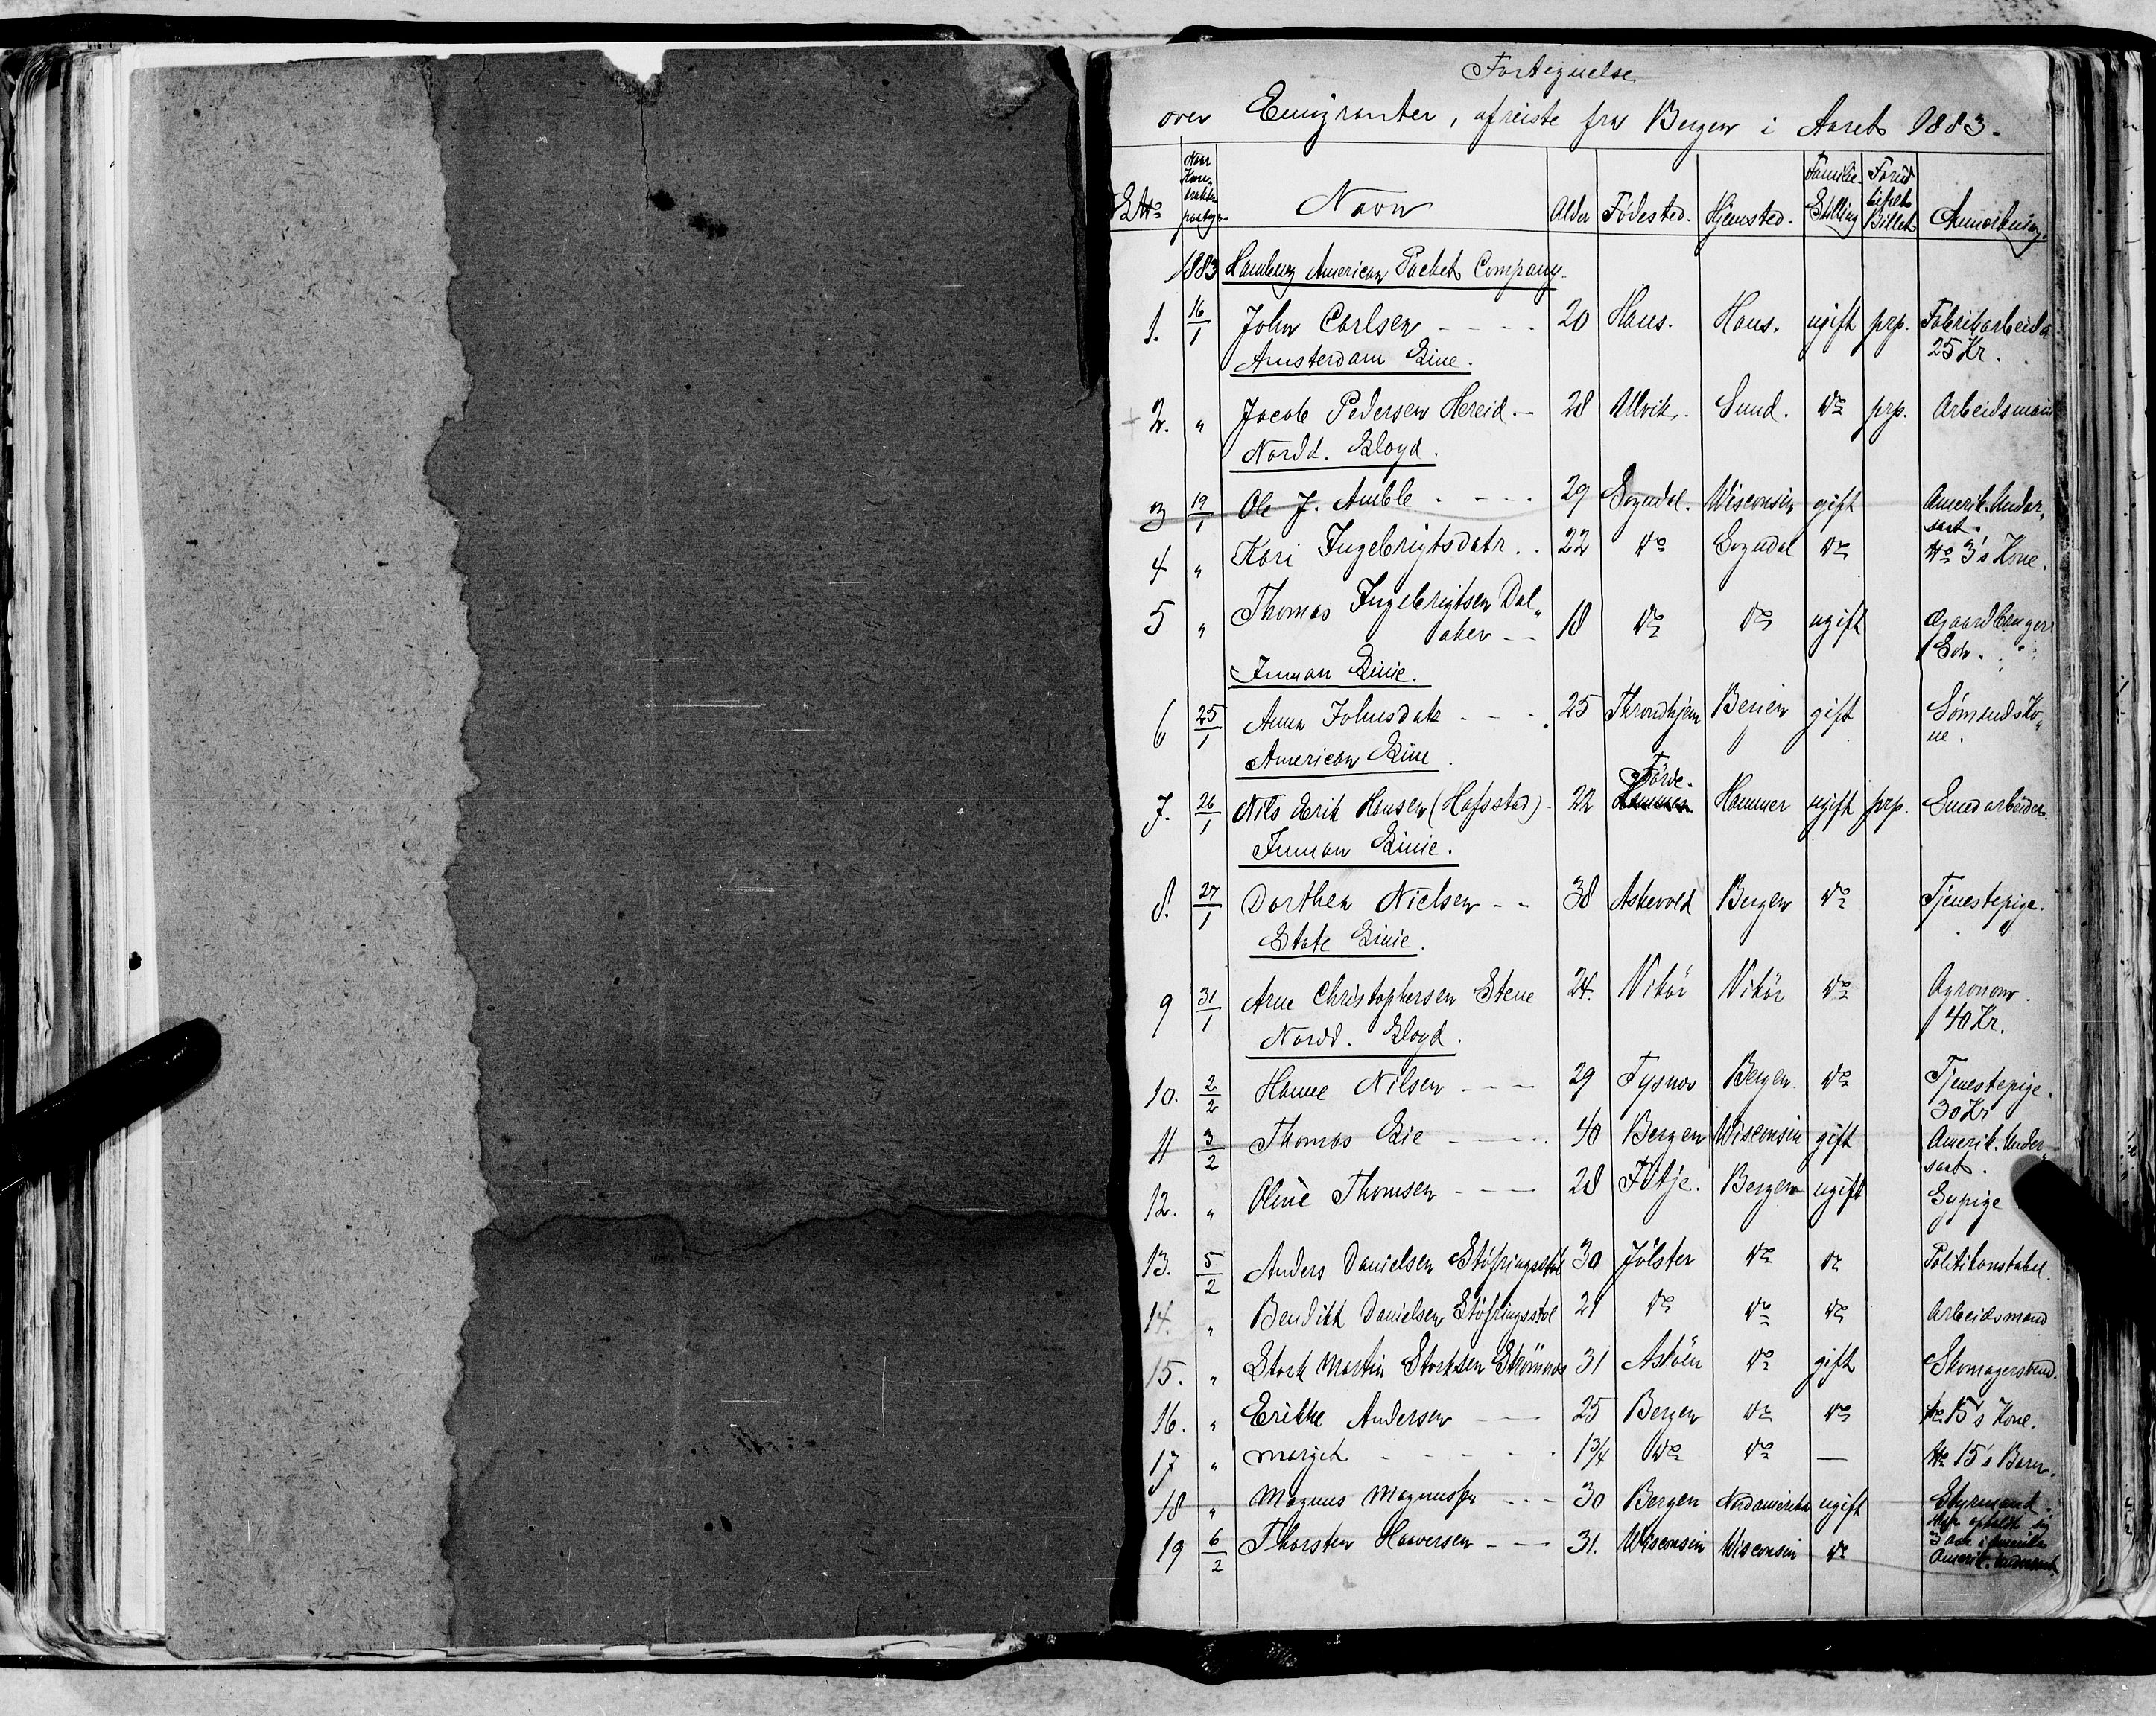 Fortegnelse
over Emigranter, afreiste fra Bergen i Aaret 1883.
LNo Naar Kontrakten paateg. Navn Alder Fødested. Hjemsted. Familie-Stilling Forud betalt Billet Anmerkning.
1883 Hamburg American Packet Company.
1. 16/1 John Carlsen - - - - 20 Haus. Haus. ugift prp. Fabrikarbeider
25 Kr.
Amsterdam Line.
2. " Jacob Pedersen Hereid. - 28 Ulvik. Sund. do prp. Arbeidsmand
Nordd. Lloyd.
3 19/1 Ole J. Amble - - - 29 Sogndal. Wisconsin gift Amerik. Under„
saat.
4 " Kari Ingebrigtsdatr. . 22 do Sogndal do No 3's Kone.
5 " Thomas Ingebrigtsen Dal„
aker - - 18 do do ugift Gaardbrugers
Søn.
Inman Linie.
6 25/1 Anna Johnsdatr - - - 25 Throndhjem Bergen gift Sømands Ko„
ne.
American Line.
Førde.
7. 26/1 Nils Erik Hansen (Hafsstad). 22 Hammer Hammer ugift prp. Smedarbeider.
Inman Linie.
8. 27/1 Dorthea Nielsen - - 38 Askevold Bergen do Tjenestepige.
State Linie.
9 31/1 Arne Christophersen Stene 24. Vikør Vikør do Agronom.
40 Kr.
Nordd. Lloyd.
10. 2/2 Hanne Nilsen - - - 29 Tysnes Bergen. do Tjenestepige.
30 Kr
11 3/2 Thomas Lie - - - - 40 Bergen Wisconsin gift Amerik. Under„
saat.
12. " Oline Thomsen - - - 28 Fitje. Bergen ugift Sypige
13. 5/2 Anders Danielsen Støfringsstøl 30 Jölster do do Politikonstabel.
14. " Bendikt Danielsen Støfringsstøl 21 do do do Arbeidsmand
15. " Stork Martin Storksen Strömsnes 31 Asköen do gift Skomagersvend.
16. " Erikke Andersen - - 25 Bergen do do No 15's Kone.
17 " Margit - - - - - 1 3/4 do do — No 15's Barn.
18 " Magnus Magnussen - - - 30 Bergen Nordamerika ugift Styrmand.
3 Aar i Amerika
19 6/2 Thorsten Haaversen - - - 31. Wisconsin Wisconsin do Amerik.